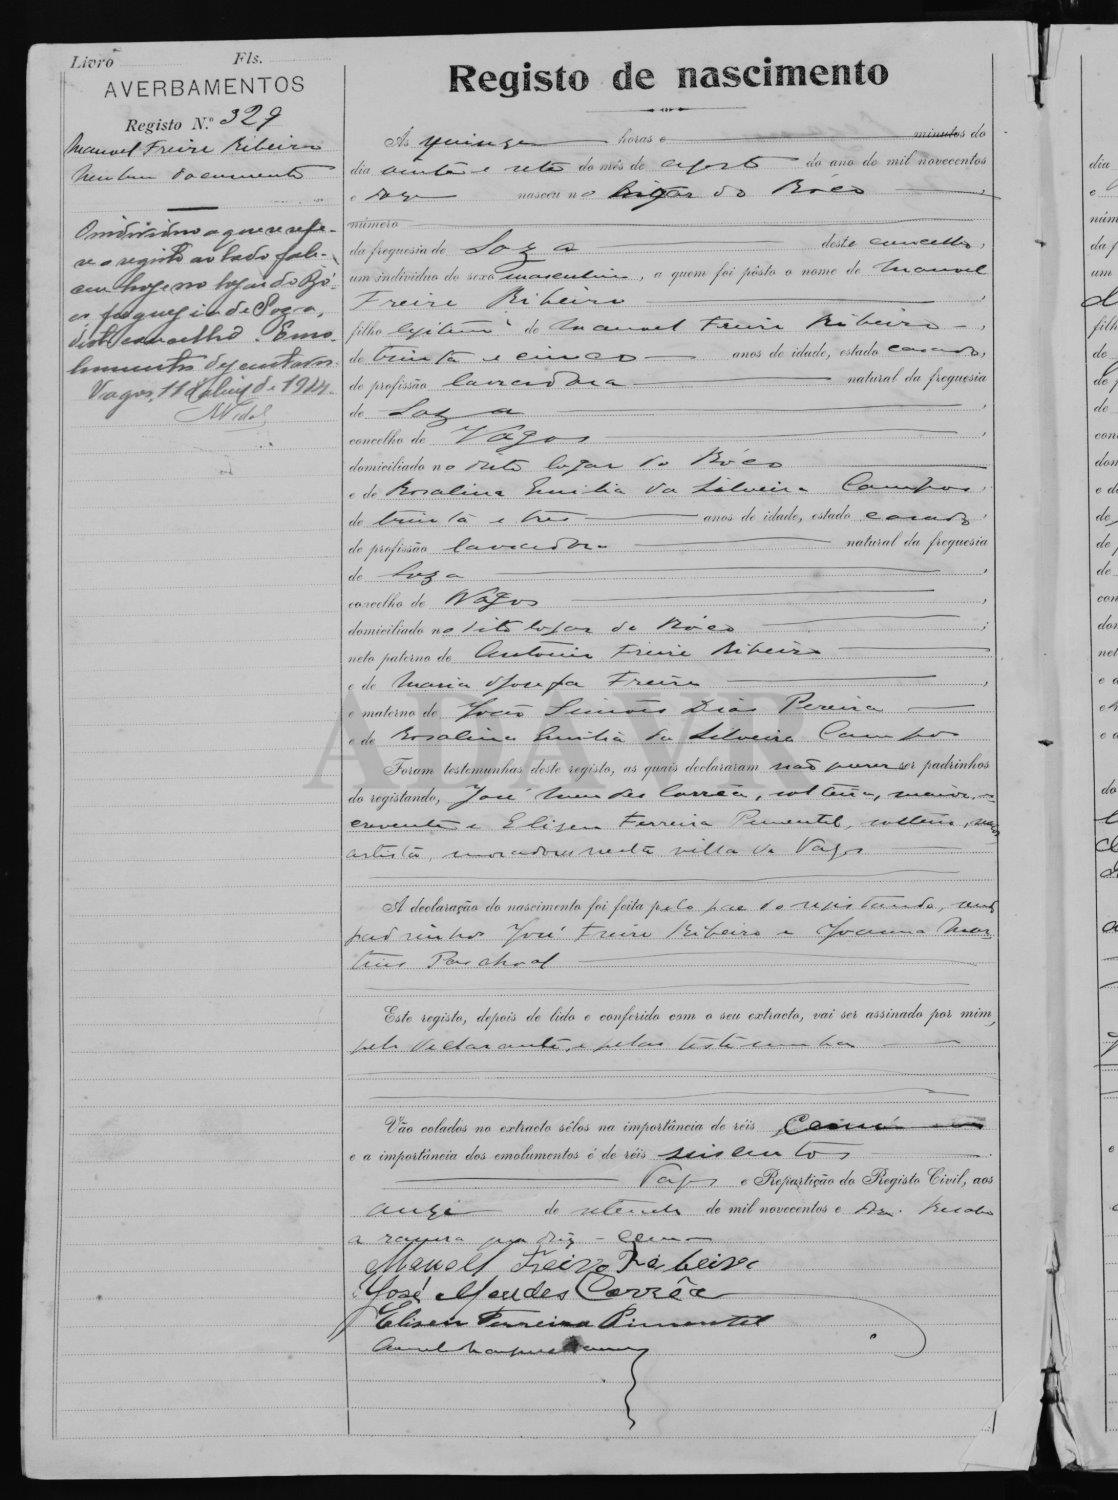 Livro Fls.
AVERBAMENTOS
Registo N.º 329
Manuel Freire Ribeiro
Nenhum documento
O individuo a que se refe-
re o registo ao lado fale-
ceu hoje no lugar do Bó-
co freguezia de Soza,
deste concelho. Emo-
lumentos
Vagos, 11 de 1914.
Registo de nascimento
Ás quinze horas e minutos do
dia oito e sete do mês de agosto do ano de mil novecentos
e doze nasceu no lugar do Bóco
número
da freguesia de Soza deste concelho,
um indivíduo do sexo masculino, a quem foi pôsto o nome de Manuel
Freire Ribeiro
filho legitimo de Manuel Freire Ribeiro
de trinta e cinco anos de idade, estado casado,
de profissão lavrador natural da freguesia
de Soza
concelho de Vagos
domiciliado no dito lugar do Bóco
e de Rosalina Emilia da Silveira Campos
de trinta e tres anos de idade, estado casada
de profissão lavradora natural da freguesia
de Soza
concelho de Vagos
domiciliado no dito lugar do Bóco
neto paterno de Antonio Freire Ribeiro
e de Maria Josefa Freire
e materno de João Simões Dias Pereira
e de Rosalina Emilia da Silveira Campos
Foram testemunhas deste registo, as quais declararam não querer ser padrinhos
do registando, José Mendes Corrêa, solteiro, maior,
e Eliseu Ferreira Pimentel, solteiro, maior
artista, moradores nesta villa de Vagos
A declaração do nascimento foi feita pelo pae do registando, sendo
padrinhos José Freire Ribeiro e Joanna Mar-
tins Paschoal
Este registo, depois de lido e conferido com o seu extracto, vai ser assinado por mim,
pelo declarante, e pelas testemunhas
Vão colados no extracto sêlos na importância de réis
e a importância dos emolumentos é de réis seiscentos
Vagos e Repartição do Registo Civil, aos
onze de setembro de mil novecentos e doze. Resalvo
a rasura que diz
Manoel Freire Ribeiro
José Mendes Corrêa
Eliseu Ferreira Pimentel
ADAVR